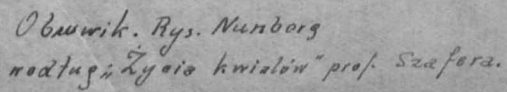 Obuwik. Rys. Nunborg
według „Życia kwiatów" prof. Szafera.